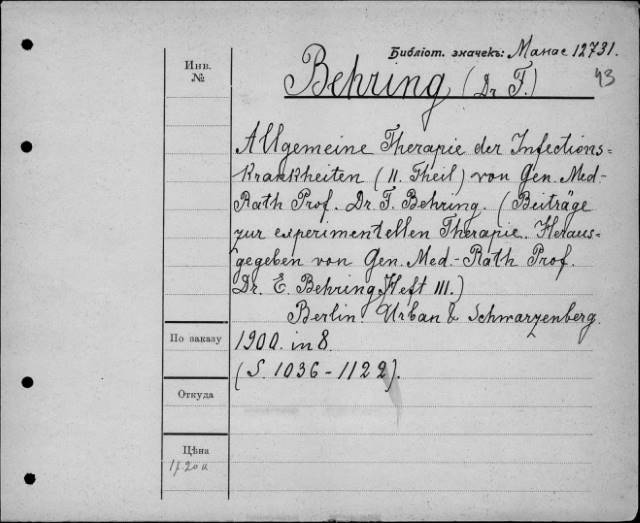 Библіот. значекъ: Манас 12731.
43
Инв.
№
Behring (Dr F.)
Allgemeine Therapie der Infections=
krankheiten (II. Theil) von Gen. Med-
Rath Prof. Dr. F. Behring. (Beiträge
zur experimentellen Therapie. Heraus=
gegeben von Gen. Med.- Rath Prof.
Dr. E. Behring, Heft III.)
Berlin. Urban & Schwarzenberg.
По заказу
1900. in 8.
(S. 1036-1122).
Откуда
Цѣна